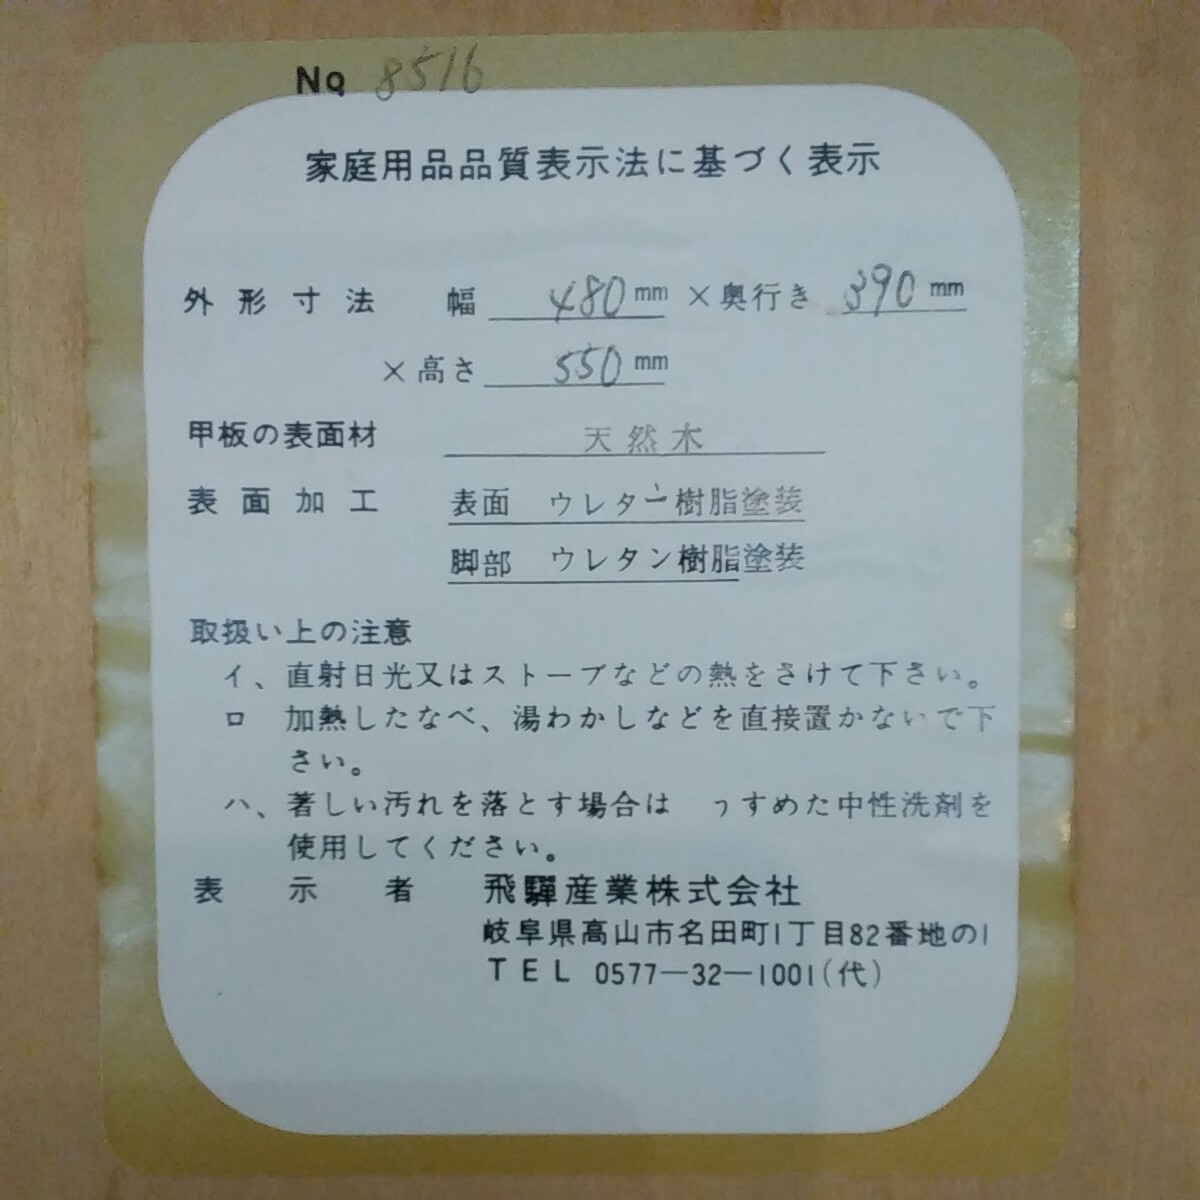 No 8516
家庭用品品質表示法に基づく表示
外形寸法 幅 480 mm ×奥行き 390 mm
×高さ 550 mm
甲板の表面材 天然木
表面加工 表面 ウレタン樹脂塗装
脚部 ウレタン樹脂塗装
取扱い上の注意
イ、直射日光又はストーブなどの熱をさけて下さい。
ロ 加熱したなべ、湯わかしなどを直接置かないで下
さい。
ハ、著しい汚れを落とす場合は うすめた中性洗剤を
使用してください。
表示者 飛驒産業株式会社
岐阜県高山市名田町1丁目82番地の1
TEL 0577—32—1001(代)